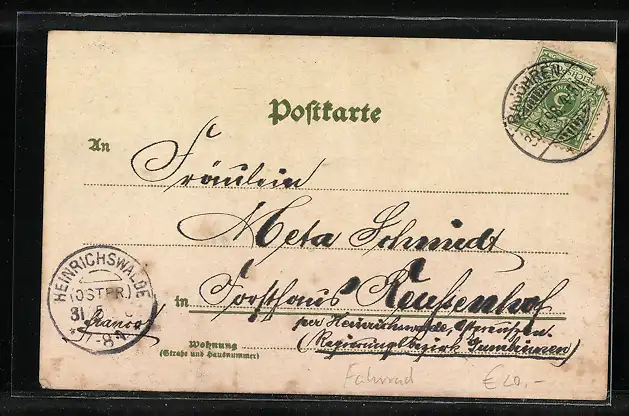 Postkarte
An
Fräulein
Meta Schmidt
HEINRICHSWALDE
(OSTPR.)
31
7-8
in Forsthaus
franco!
per Heinrichswalde, Ostpreußen.
Wohnung
(Regierungsbezirk Gumbinnen)
(Straße und Hausnummer)
Fahrrad €20,-